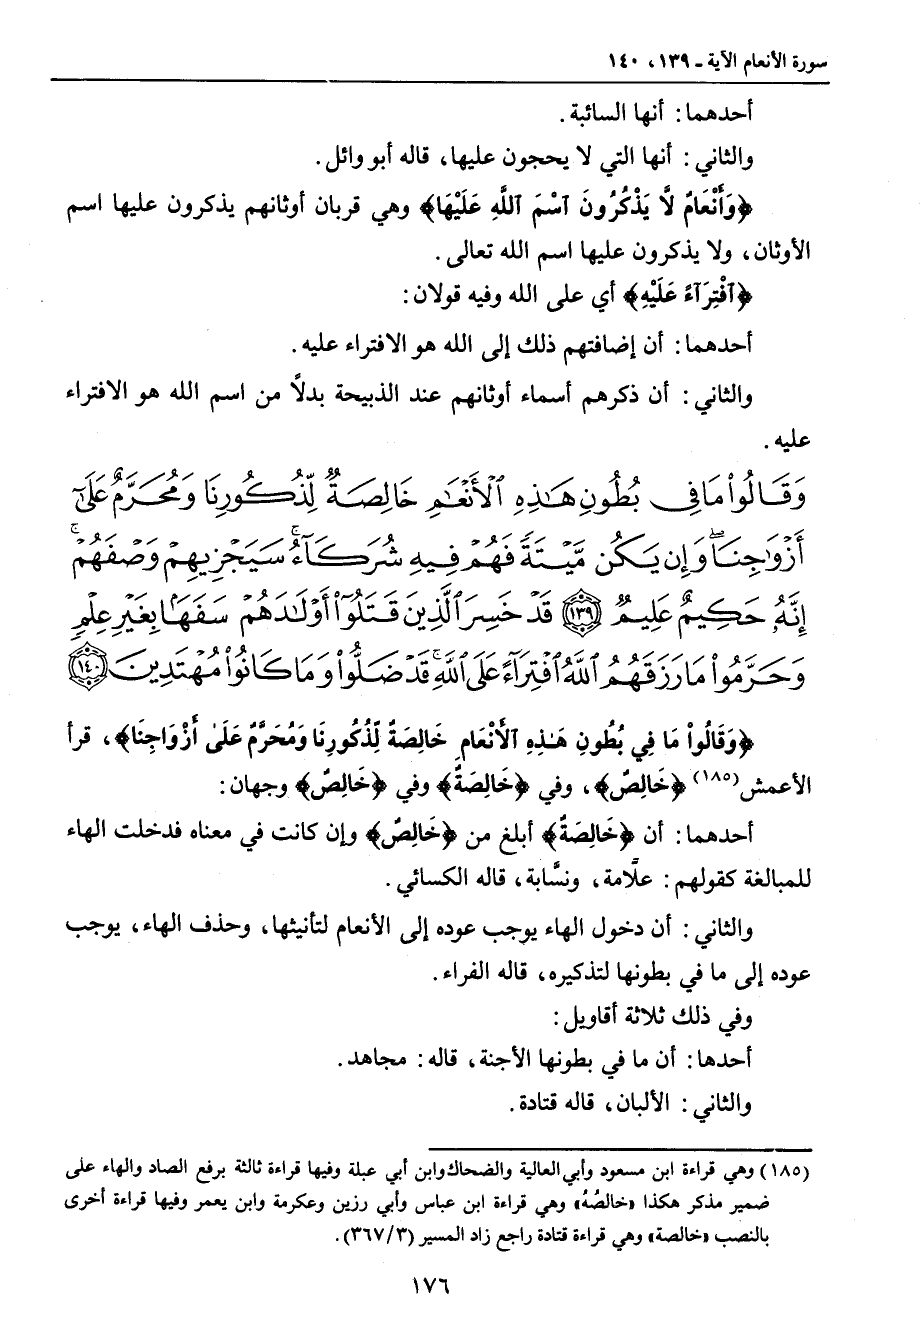 سورة الأنعام الآية - ١٣٩، ١٤٠
أحدهما: أنها السائبة.
والثاني: أنها التي لا يحجون عليها، قاله أبو وائل.
﴿وَأَنْعَامٌ لَّا يَذْكُرُونَ ٱسْمَ ٱللَّهِ عَلَيْهَا﴾ وهي قربان أوثانهم يذكرون عليها اسم
الأوثان، ولا يذكرون عليها اسم الله تعالى.
﴿ٱفْتِرَآءً عَلَيْهِ﴾ أي على الله وفيه قولان:
أحدهما: أن إضافتهم ذلك إلى الله هو الافتراء عليه.
والثاني: أن ذكرهم أسماء أوثانهم عند الذبيحة بدلاً من اسم الله هو الافتراء
عليه.
وَقَالُوا۟ مَا فِى بُطُونِ هَـٰذِهِ ٱلْأَنْعَـٰمِ خَالِصَةٌ لِّذُكُورِنَا وَمُحَرَّمٌ عَلَىٰٓ
أَزْوَٰجِنَا ۖ وَإِن يَكُن مَّيْتَةً فَهُمْ فِيهِ شُرَكَآءُ ۚ سَيَجْزِيهِمْ وَصْفَهُمْ ۚ
إِنَّهُۥ حَكِيمٌ عَلِيمٌ ١٣٩ قَدْ خَسِرَ ٱلَّذِينَ قَتَلُوٓا۟ أَوْلَـٰدَهُمْ سَفَهًۢا بِغَيْرِ عِلْمٍ
وَحَرَّمُوا۟ مَا رَزَقَهُمُ ٱللَّهُ ٱفْتِرَآءً عَلَى ٱللَّهِ ۚ قَدْ ضَلُّوا۟ وَمَا كَانُوا۟ مُهْتَدِينَ ١٤٠
﴿وَقَالُوا۟ مَا فِي بُطُونِ هَـٰذِهِ ٱلْأَنْعَامِ خَالِصَةٌ لِّذُكُورِنَا وَمُحَرَّمٌ عَلَىٰ أَزْوَاجِنَا﴾، قرأ
الأعمش(١٨٥) ﴿خَالِصٌ﴾، وفي ﴿خَالِصَةٌ﴾ وفي ﴿خَالِصٌ﴾ وجهان:
أحدهما: أن ﴿خَالِصَةٌ﴾ أبلغ من ﴿خَالِصٌ﴾ وإن كانت في معناه فدخلت الهاء
للمبالغة كقولهم: علَّامة، ونسَّابة، قاله الكسائي.
والثاني: أن دخول الهاء يوجب عوده إلى الأنعام لتأنيثها، وحذف الهاء، يوجب
عوده إلى ما في بطونها لتذكيره، قاله الفراء.
وفي ذلك ثلاثة أقاويل:
أحدها: أن ما في بطونها الأجنة، قاله: مجاهد.
والثاني: الألبان، قاله قتادة.
(١٨٥) وهي قراءة ابن مسعود وأبي العالية والضحاك وابن أبي عبلة وفيها قراءة ثالثة برفع الصاد والهاء على
ضمير مذكر هكذا «خالصُهُ» وهي قراءة ابن عباس وأبي رزين وعكرمة وابن يعمر وفيها قراءة أخرى
بالنصب «خالصة» وهي قراءة قتادة راجع زاد المسير (٣/٣٦٧).
١٧٦